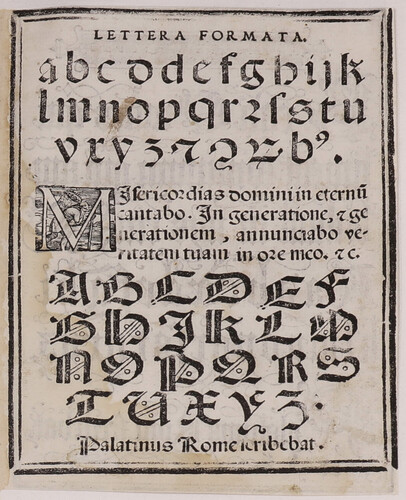 LETTERA FORMATA.
abcddefghijk
lmnopqrꝛſstu
vxyz⁊ꝝ bꝰ.
MIsericordias domini in eternũ
cantabo. In generatione, ⁊ ge
nerationem, annunciabo ve-
ritatem tuam in ore meo. ⁊ c.
ABCDEF
GHIKLM
NOPQRS
TUXYZ.
Palatinus Rome scribebat.